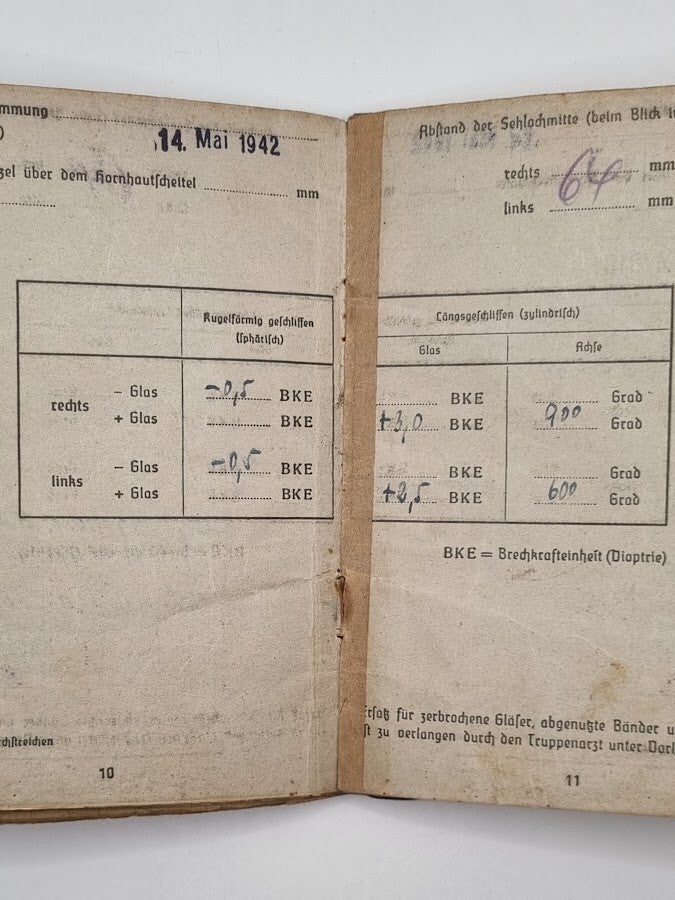 mmung
)
14. Mai 1942
zel über dem Hornhautscheitel ........ mm
Kugelförmig geschliffen
(sphärisch)
rechts
– Glas −0,5 BKE
+ Glas ........ BKE
links
– Glas −0,5 BKE
+ Glas ........ BKE
chstreichen
10
Abstand der Sehlochmitte (beim Blick i
rechts ........ mm
64
links ........ mm
Längsgeschliffen (zylindrisch)
Glas Achse
........ BKE ........ Grad
+3,0 BKE 90⁰ Grad
........ BKE ........ Grad
+2,5 BKE 60⁰ Grad
BKE = Brechkrafteinheit (Dioptrie)
Ersatz für zerbrochene Gläser, abgenutzte Bänder u
st zu verlangen durch den Truppenarzt unter Vorl
11